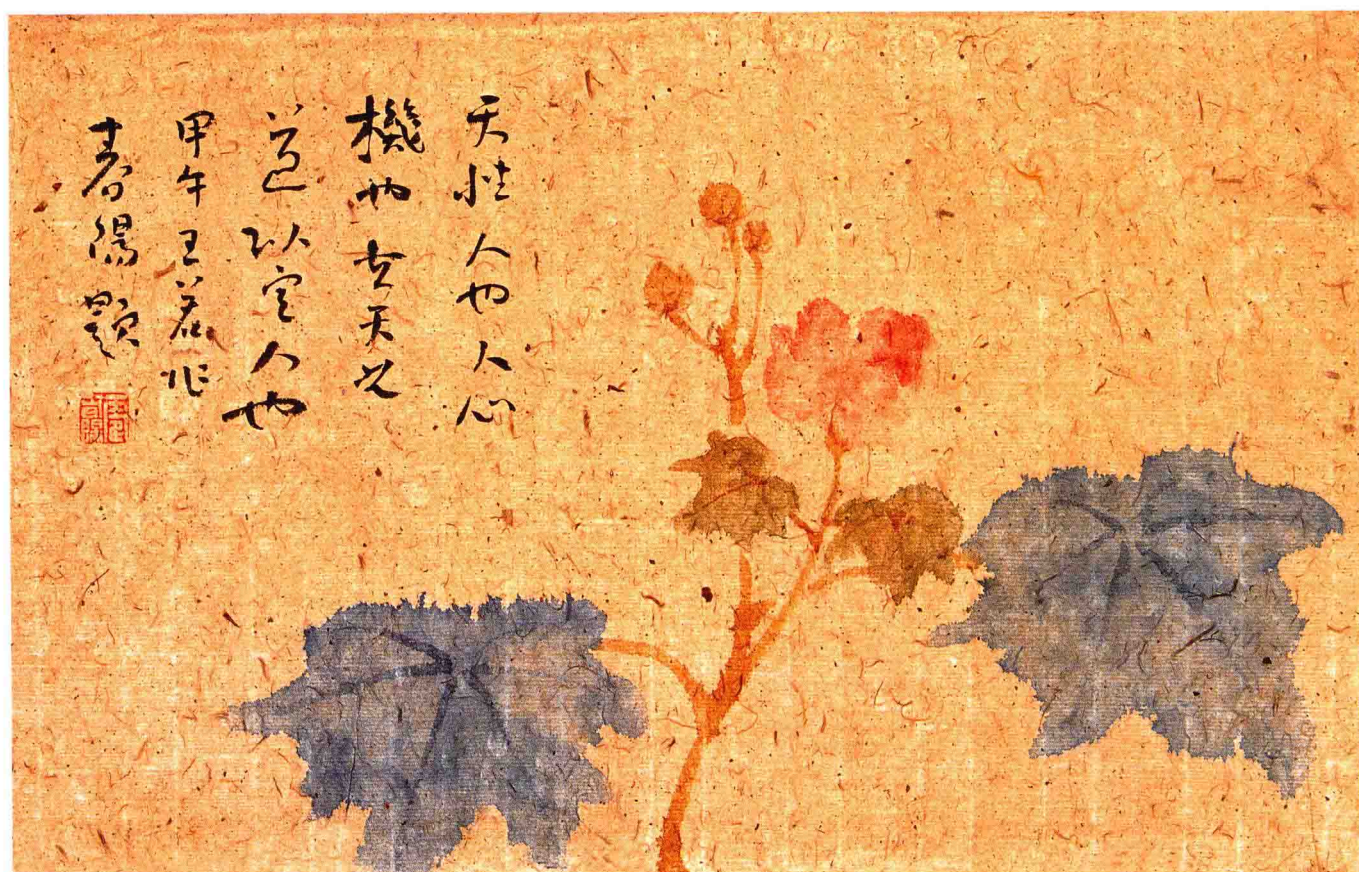 天性人也人心
機也立天之
道以定人也
甲午王若作
春陽題